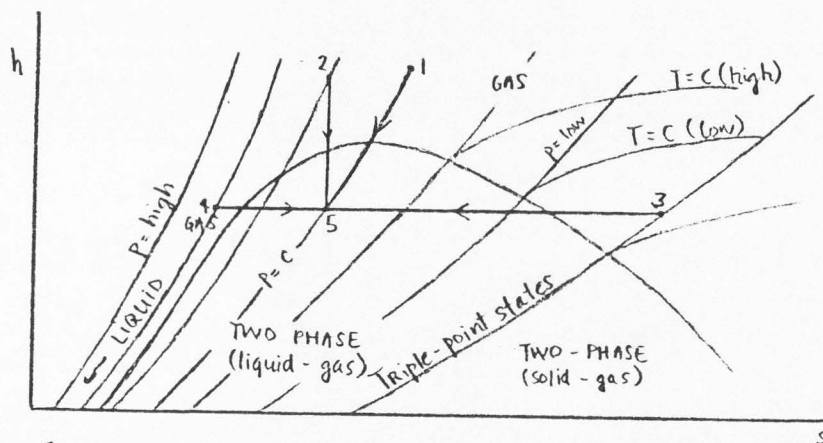 h
2
1
GAS
T = C (high)
P = low
T = C (low)
P = high
4
GAS
3
5
P = C
LIQUID
TWO PHASE
(liquid - gas)
TRiple-point states
TWO - PHASE
(solid - gas)